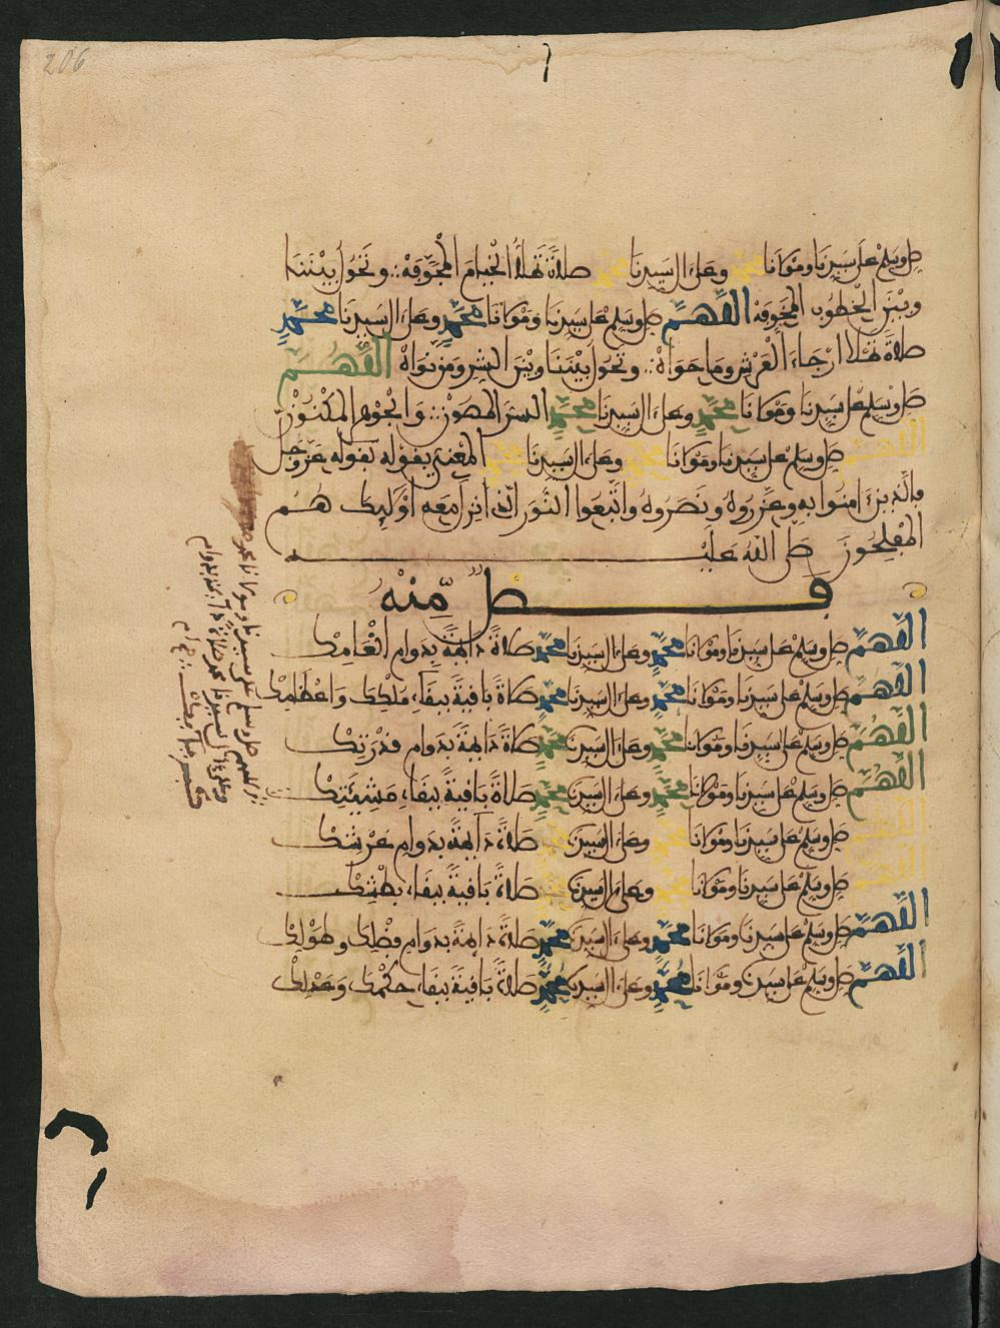 206
صل وسلم على سيدنا ومولانا محمد وعلى ال سيدنا محمد صلاة تملأ الخيام المجوفة ∴ وتحول بيننا
وبين الخطوب المخوفة اللهم صل وسلم على سيدنا ومولانا محمد وعلى ال سيدنا محمد
صلاة تملأ ارجاء العرش وما حواه ∴ وتحول بيننا وبين الشر ومن نواه اللهم
صل وسلم على سيدنا ومولانا محمد وعلى ال سيدنا محمد السر المصون ∴ والجوهر المكنون
اللهم صل وسلم على سيدنا ومولانا محمد وعلى ال سيدنا محمد المعني بقوله بقوله عز وجل
فالذين ءامنوا به وعزروه ونصروه واتبعوا النور الذي انزل معه اولئك هم
المفلحون صلى الله عليه
فصل منه
اللهم صل وسلم على سيدنا ومولانا محمد وعلى ال سيدنا محمد صلاة دائمة بدوام انعامك
اللهم صل وسلم على سيدنا ومولانا محمد وعلى ال سيدنا محمد صلاة باقية ببقاء ملكك واعظامك
اللهم صل وسلم على سيدنا ومولانا محمد وعلى ال سيدنا محمد صلاة دائمة بدوام قدرتك
اللهم صل وسلم على سيدنا ومولانا محمد وعلى ال سيدنا محمد صلاة باقية ببقاء مشيئتك
اللهم صل وسلم على سيدنا ومولانا محمد وعلى ال سيدنا محمد صلاة دائمة بدوام عرشك
اللهم صل وسلم على سيدنا ومولانا محمد وعلى ال سيدنا محمد صلاة باقية ببقاء بطشك
اللهم صل وسلم على سيدنا ومولانا محمد وعلى ال سيدنا محمد صلاة دائمة بدوام فضلك وطولك
اللهم صل وسلم على سيدنا ومولانا محمد وعلى ال سيدنا محمد صلاة باقية ببقاء حكمك وعدلك
اللهم صل وسلم على سيدنا ومولانا محمد
وعلى ال سيدنا محمد صلاة